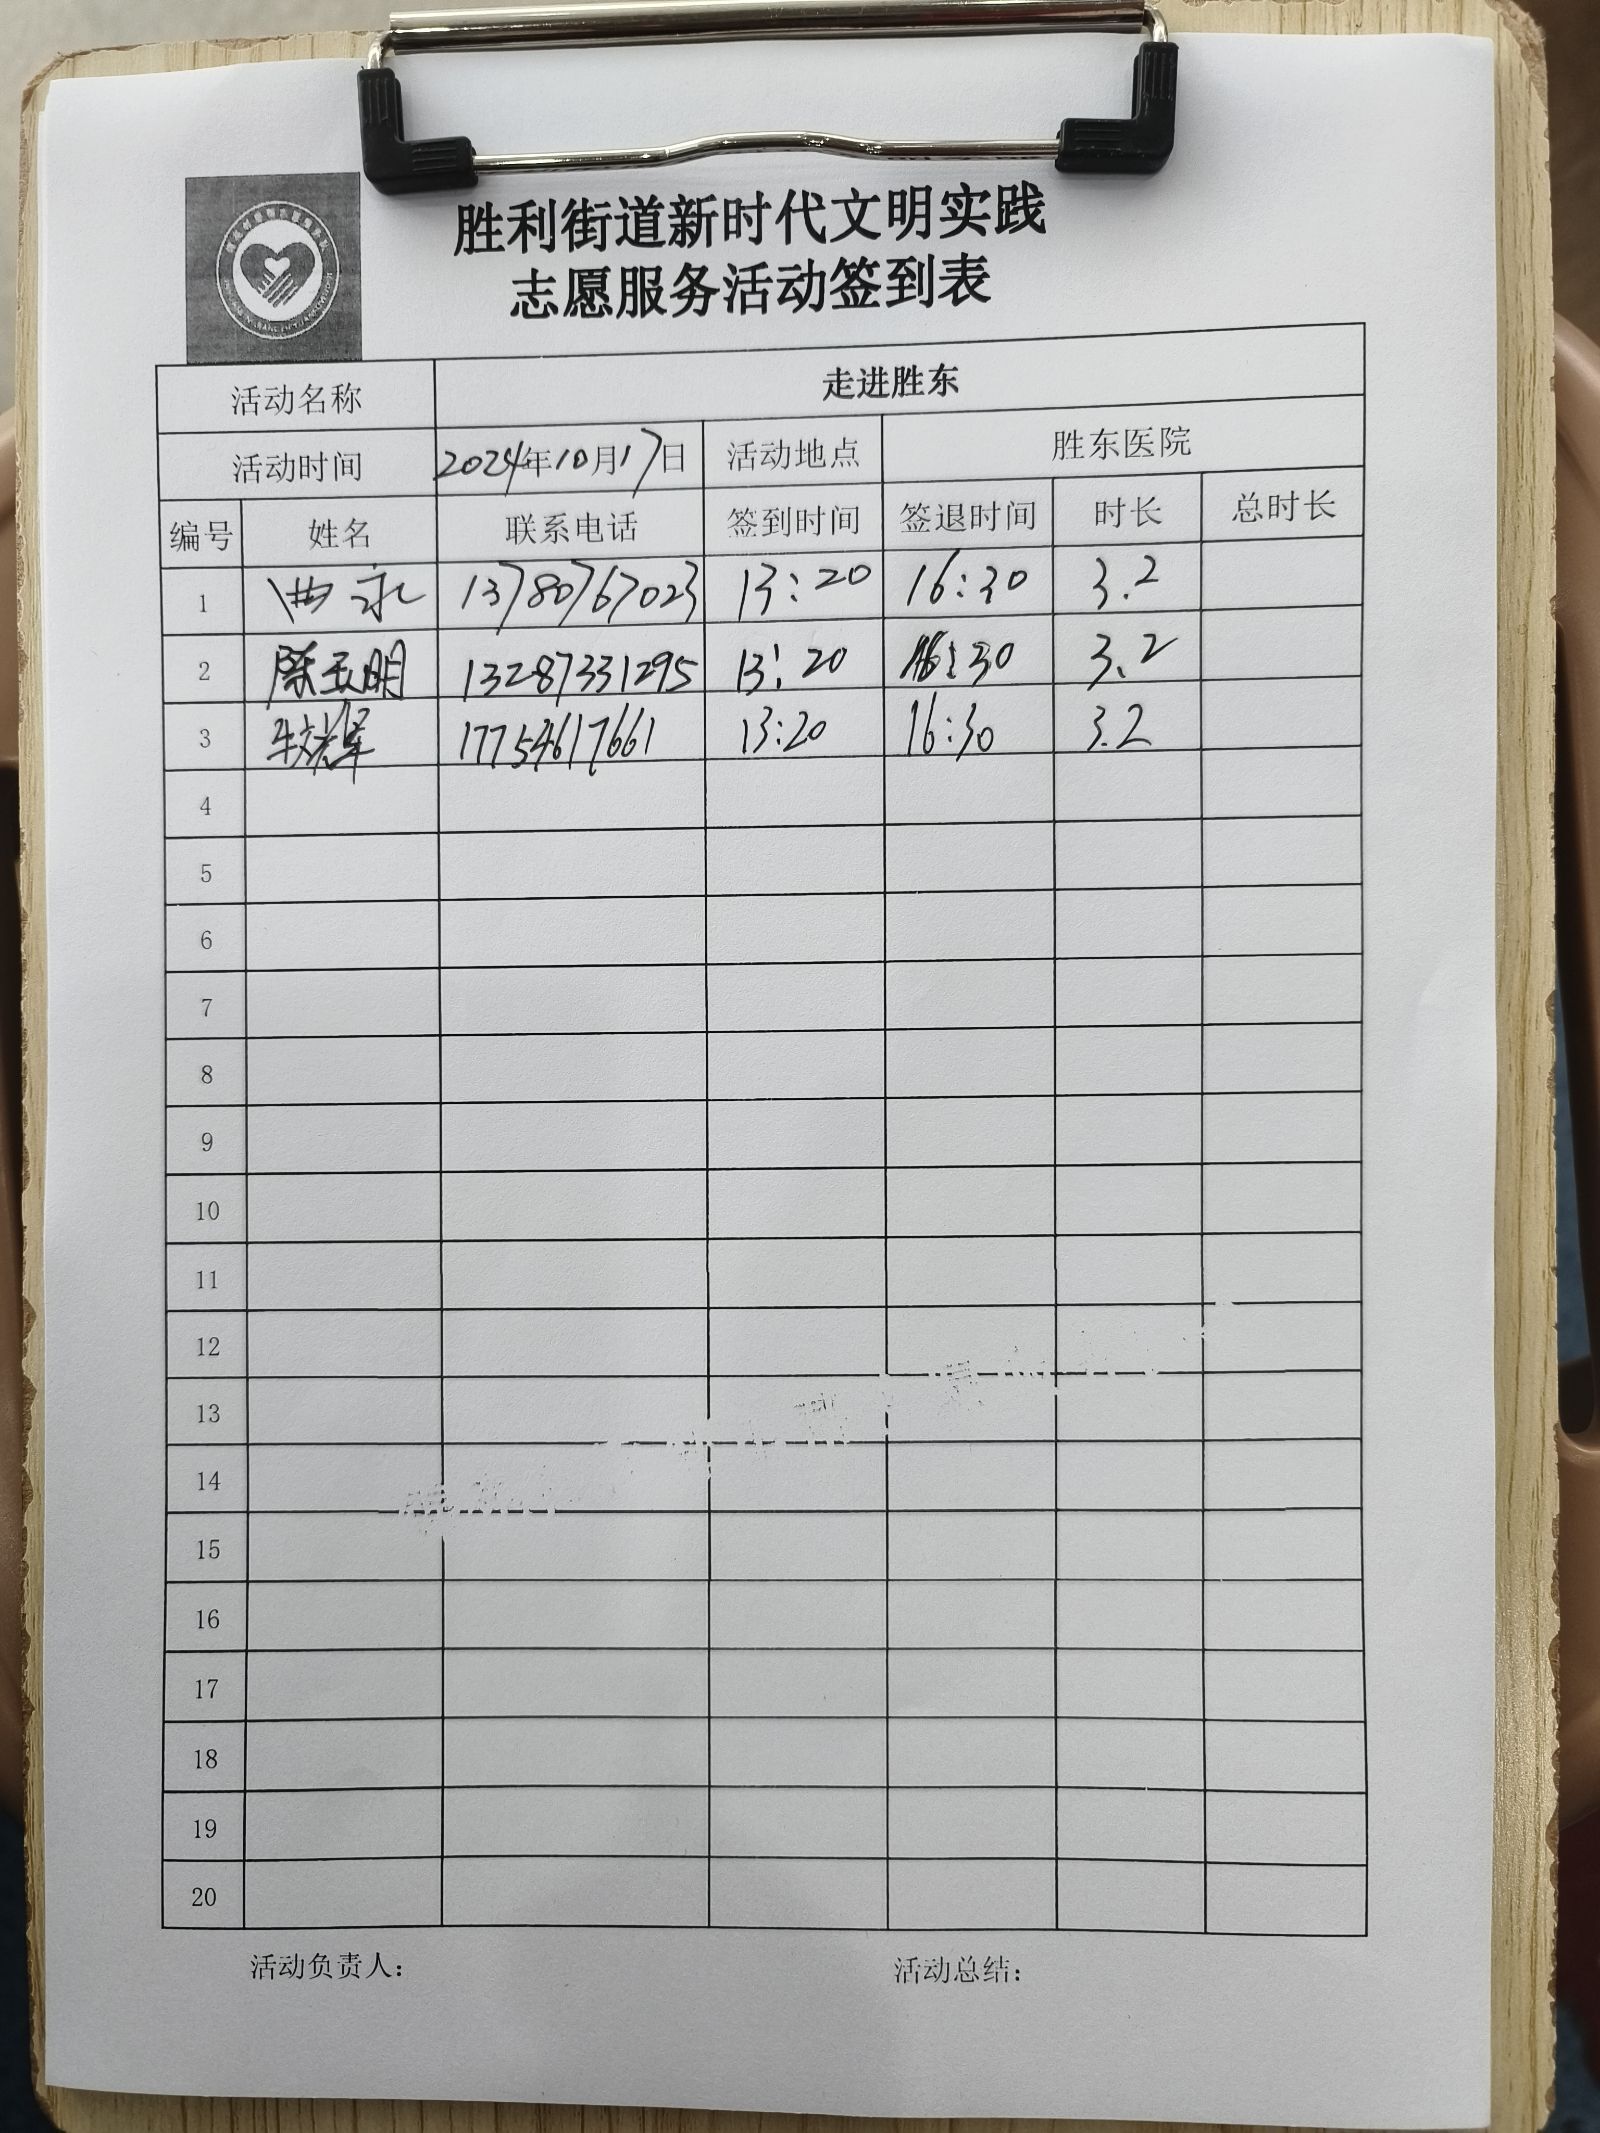 胜利街道新时代文明实践
志愿服务活动签到表
活动名称 走进胜东
活动时间 2024年10月17日 活动地点 胜东医院
编号 姓名 联系电话 签到时间 签退时间 时长 总时长
1 永 13780767023 13:20 16:30 3.2
2 陈玉明 13287331295 13:20 16:30 3.2
3 17754617661 13:20 16:30 3.2
4
5
6
7
8
9
10
11
12
13
14
15
16
17
18
19
20
活动负责人: 活动总结: